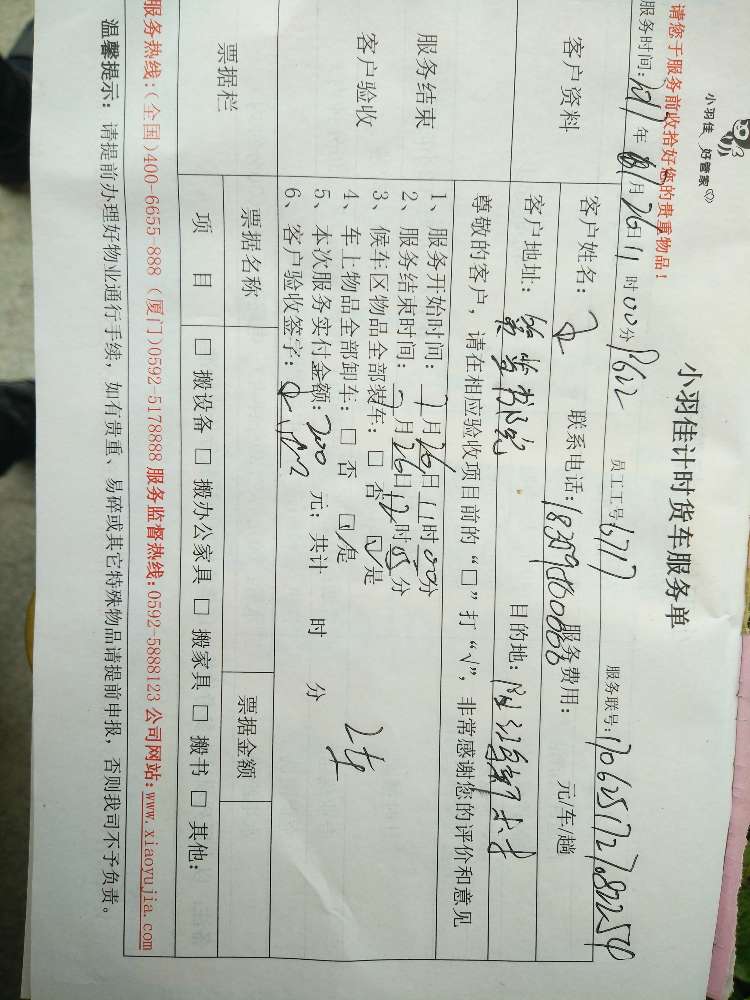 小羽佳 好管家
小羽佳计时货车服务单
请您于服务前收拾好您的贵重物品！
服务时间: 年 月 26日 11 时 00分 员工工号 服务联号: 
客户资料
客户姓名: 联系电话: 服务费用: 元/车/趟
客户地址: 书院 目的地:
尊敬的客户，请在相应验收项目前的“□”打“√”，非常感谢您的评价和意见
服务结束
客户验收
1、服务开始时间: 7月26日11时00分
2、服务结束时间: 7月26日12时05分
3、候车区物品全部装车: □ 否 ☑ 是
4、车上物品全部卸车: □ 否 ☑ 是
5、本次服务实付金额: 200 元; 共计 时 分
6、客户验收签字:
票据栏
票据名称 票据金额
项 目 □ 搬设备 □ 搬办公家具 □ 搬家具 □ 搬书 □ 其他:
服务热线:(全国)400-6655-888 (厦门)0592-5178888 服务监督热线:0592-5888123 公司网站:www.xiaoyujia.com
温馨提示: 请提前办理好物业通行手续，如有贵重、易碎或其它特殊物品请提前申报，否则我司不予负责。